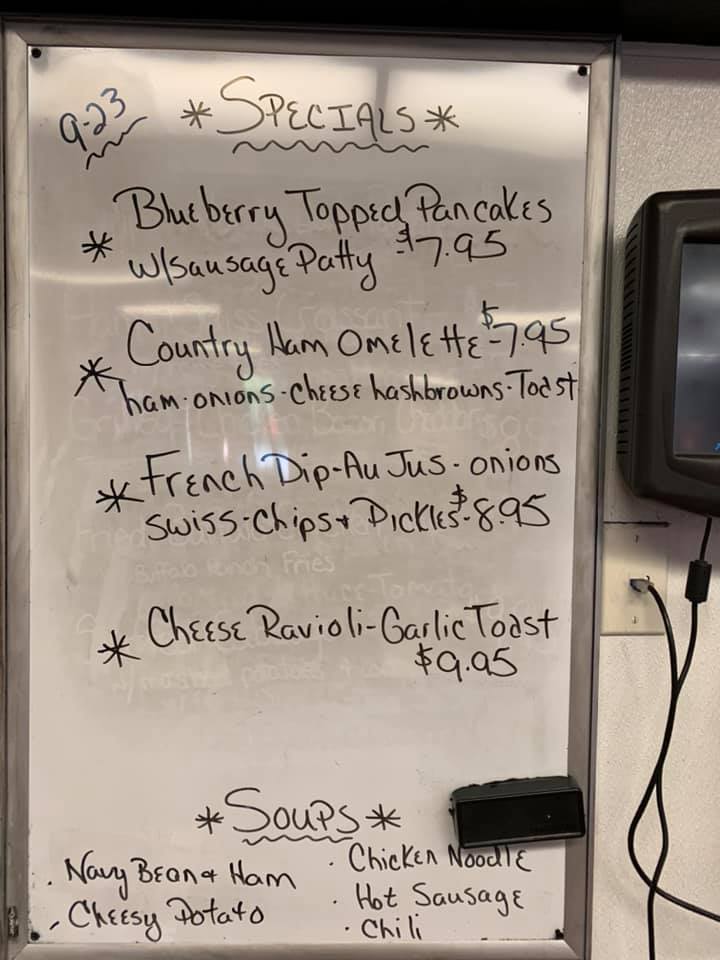 9-23
* Specials *
* Blueberry Topped Pancakes
w/Sausage Patty - $7.95
* Country Ham Omelette - $7.95
ham - onions - cheese hashbrowns - Toast
* French Dip - Au Jus - onions
Swiss - Chips + Pickles - $8.95
* Cheese Ravioli - Garlic Toast
$9.95
* Soups *
. Navy Bean + Ham
- Cheesy Potato
. Chicken Noodle
. Hot Sausage
. Chili